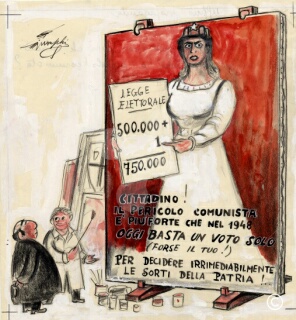 LEGGE
ELETTORALE
500.000 +
1
750.000
CITTADINO!
IL PERICOLO COMUNISTA
È PIU FORTE CHE NEL 1948
OGGI BASTA UN VOTO SOLO
(FORSE IL TUO!)
PER DECIDERE IRRIMEDIABILMENTE
LE SORTI DELLA PATRIA!
©